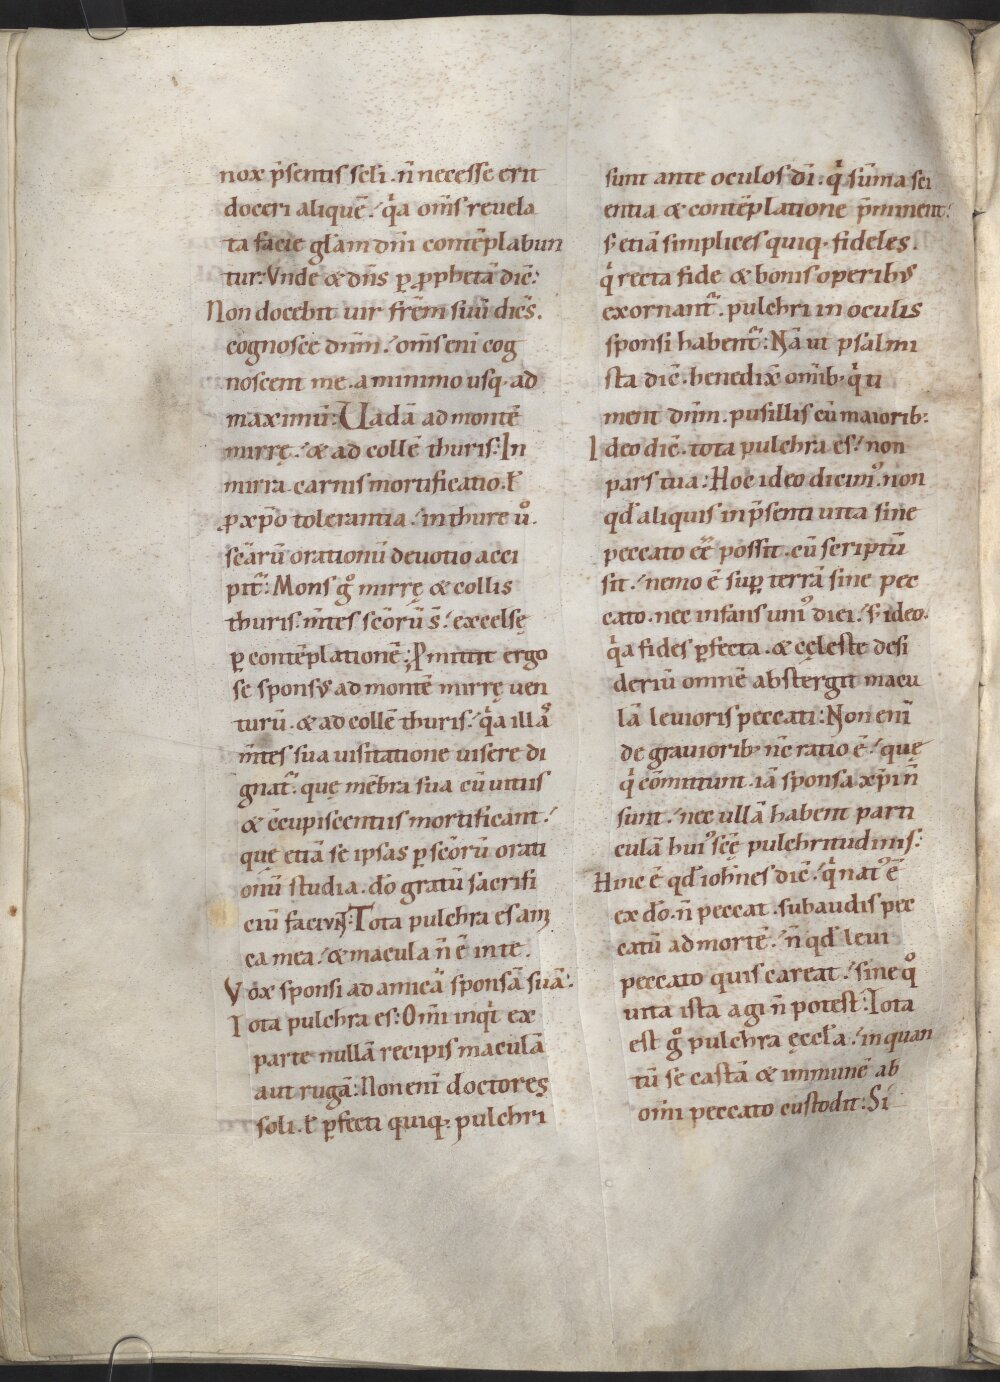 nox p̄sentis sc̄li . n̄ necesse erit
doceri aliquē . qͥa om̄s revela
ta facie gl̄am dn̄i contēplabun
tur : Vnde & dn̄s ꝑ ꝓphetā dic̄ :
Non docebit uir frēm suū dicēs .
cognosce dn̄m . om̄s eni cog
noscent me . a minimo usq· ad
maximū : Vadā ad montē
mirrę . & ad collē thuris : In
mirra carnis mortificatio . ł
ꝓ xp̄o tolerantia . in thure uͦ .
scārū orationū deuotio acci
pit᷑ : Mons gͦ mirrę & collis
thuris . m̄tes scōrū s̄ . excelsę
ꝑ contēplationē ; Pmittit ergo
se sponsus ad montē mirrę uen
turū . & ad collē thuris . qͥa illaͬ
m̄tes sua uisitatione uisere di
gnat᷑ . quę mēbra sua cū uitiis
& c̄cupiscentiis mortificant .
quę etiā se ipsas ꝑ scōrū orati
onū studia . dō gratū sacrifi
ciū faciunt : Tota pulchra es am
ica mea . & macula n̄ ē in te .
Vox sponsi ad amicā sponsā suā :
Tota pulchra es : Om̄i inqͥt ex
parte nullā recipis maculā
aut rugā : Non eni doctores
soli . ł ꝑfecti quiq· pulchri
sunt ante oculos dī . qͥ sūma sci
entia & contēplatione p̄minent .
s; etiā simplices quiq· fideles .
qͥ recta fide & bonis operibus
exornant᷑ . pulchri in oculis
sponsi habent᷑ : Nā ut psalmi
sta dic̄ . benedix̄ om̄ib· qͥ ti
ment dn̄m . pusillis cū maiorib· :
Ideo dic̄ . tota pulchra es . non
pars tua : Hoc ideo dicimꝰ . non
qd̄ aliquis in p̄senti uita sine
peccato eē possit . cū scriptū
sit . nemo ē suꝑ terrā sine pec
cato . nec infans uniꝰ diei . s; ideo .
qͥa fides ꝑfecta . & cęleste desi
deriū omnē abstergit macu
lā leuioris peccati : Non eni
de grauiorib· nc̄ ratio ē . quę
qͥ cōmittunt . iā sponsa xp̄i n̄
sunt . nec ullā habent parti
culā huiꝰ scę̄ pulchritudinis :
Hinc ē qd̄ ioh̄nes dic̄ . qͥ natꝰ ē
ex dō . n̄ peccat . subaudis pec
catū ad mortē . n̄ qd̄ leui
peccato quis careat . sine qͦ
uita ista agi n̄ potest : Tota
est gͦ pulchra ęccła . in quan
tū se castā & immunē ab
om̄i peccato custodit : Si